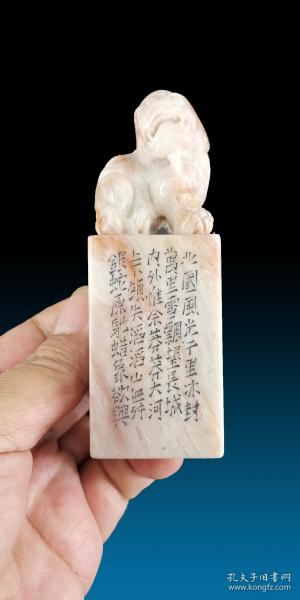 北國風光千里冰封
萬里雪飄望長城
内外惟余莽莽大河
上下頓失滔滔山舞
銀蛇原馳蜡象欲與
孔夫子旧书网
www.kongfz.com